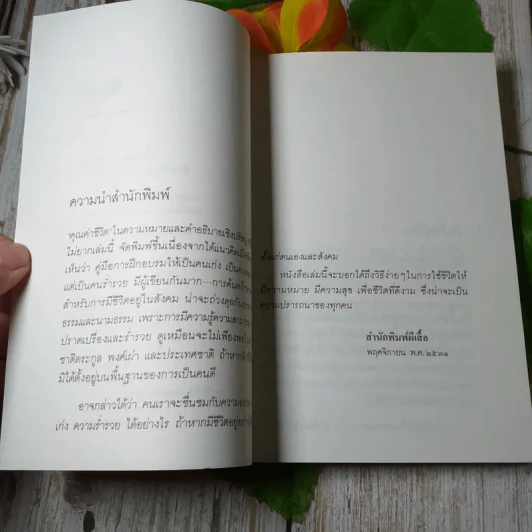 ความนำสำนักพิมพ์
'คุณค่าชีวิต' ในความหมายและคำอธิบายเชิง
ไม่ยากเล่มนี้ จัดพิมพ์ขึ้นเนื่องจากได้แนวคิด
เห็นว่า คู่มือการฝึกอบรมให้เป็นคนเก่ง เป็นคน
แต่เป็นคนร่ำรวย มีผู้เขียนกันมาก
สำหรับการมีชีวิตอยู่ในสังคม น่าจะถ่วงดุลกัน
ธรรมและนามธรรม เพราะการมีความรู้ความ
ปราดเปรื่องและร่ำรวย ดูเหมือนจะไม่เพียงพอ
ชาติตระกูล พงศ์เผ่า และประเทศชาติ ถ้าหาก
มิได้ตั้งอยู่บนพื้นฐานของการเป็นคนดี
อาจกล่าวได้ว่า คนเราจะชื่นชมกับความ
เก่ง ความร่ำรวย ได้อย่างไร ถ้าหากมีชีวิตอยู่
ทั้งแก่ตนเองและสังคม
หนังสือเล่มนี้จะบอกได้ถึงวิธีง่ายๆ ในการใช้ชีวิตให้
มีความหมาย มีความสุข เพื่อชีวิตที่ดีงาม ซึ่งน่าจะเป็น
ความปรารถนาของทุกคน
สำนักพิมพ์ผีเสื้อ
พฤศจิกายน พ.ศ. ๒๕๓๑